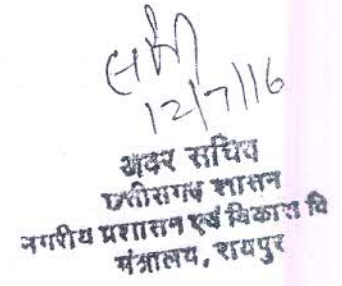 12/7/16
अवर सचिव
छत्तीसगढ़ शासन
नगरीय प्रशासन एवं विकास वि
मंत्रालय, रायपुर